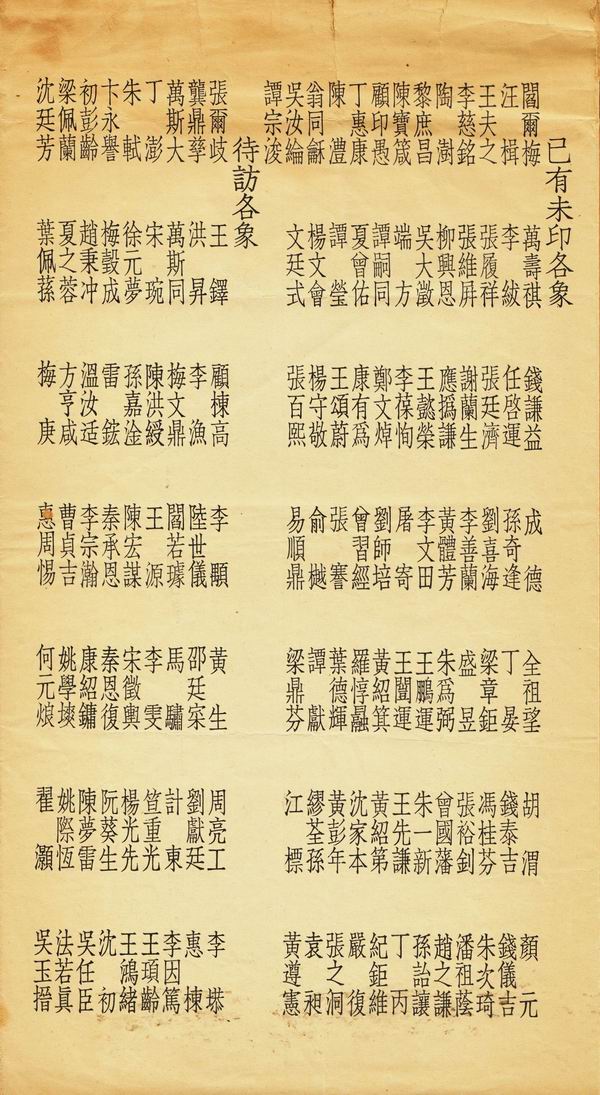 已有未印各象
閻爾梅 萬壽祺 錢謙益 成德 全祖望 胡渭 顏元
汪楫 李紱 任啓運 孫奇逢 丁晏 錢泰吉 錢儀吉
王夫之 張履祥 張廷濟 劉喜海 梁章鉅 馮桂芬 朱次琦
李慈銘 張維屏 謝蘭生 李善蘭 盛昱 張裕釗 潘祖蔭
陶澍 柳興恩 應撝謙 黃體芳 朱爲弼 曾國藩 趙之謙
黎庶昌 吳大澂 王懿榮 李文田 王鵬運 朱一新 孫詒讓
陳寶箴 端方 李葆恂 屠寄 王闓運 王先謙 丁丙
顧印愚 譚嗣同 鄭文焯 劉師培 黃紹箕 黃紹第 紀鉅維
丁惠康 夏曾佑 康有爲 曾習經 羅惇曧 沈家本 嚴復
陳澧 譚瑩 王頌蔚 張謇 葉德輝 黃彭年 張之洞
翁同龢 楊文會 楊守敬 俞樾 譚獻 繆荃孫 袁昶
吳汝綸 文廷式 張百熙 易順鼎 梁鼎芬 江標 黃遵憲
譚宗浚
待訪各象
張爾歧 王鐸 顧棟高 李顒 黃生 周亮工 李塨
龔鼎孳 洪昇 李漁 陸世儀 邵廷寀 劉獻廷 惠棟
萬斯大 萬斯同 梅文鼎 閻若璩 馬驌 計東 李因篤
丁澎 宋琬 陳洪綬 王源 李雯 笪重光 王頊齡
朱軾 徐元夢 孫嘉淦 陳宏謀 宋徵輿 楊光先 王鴻緒
卞永譽 梅瑴成 雷鋐 秦承恩 秦恩復 阮葵生 沈初
初彭齡 趙秉冲 溫汝适 李宗瀚 康紹鏞 陳夢雷 吳任臣
梁佩蘭 夏之蓉 方亨咸 曹貞吉 姚學塽 姚際恆 法若眞
沈廷芳 葉佩蓀 梅庚 惠周惕 何元烺 翟灝 吳玉搢